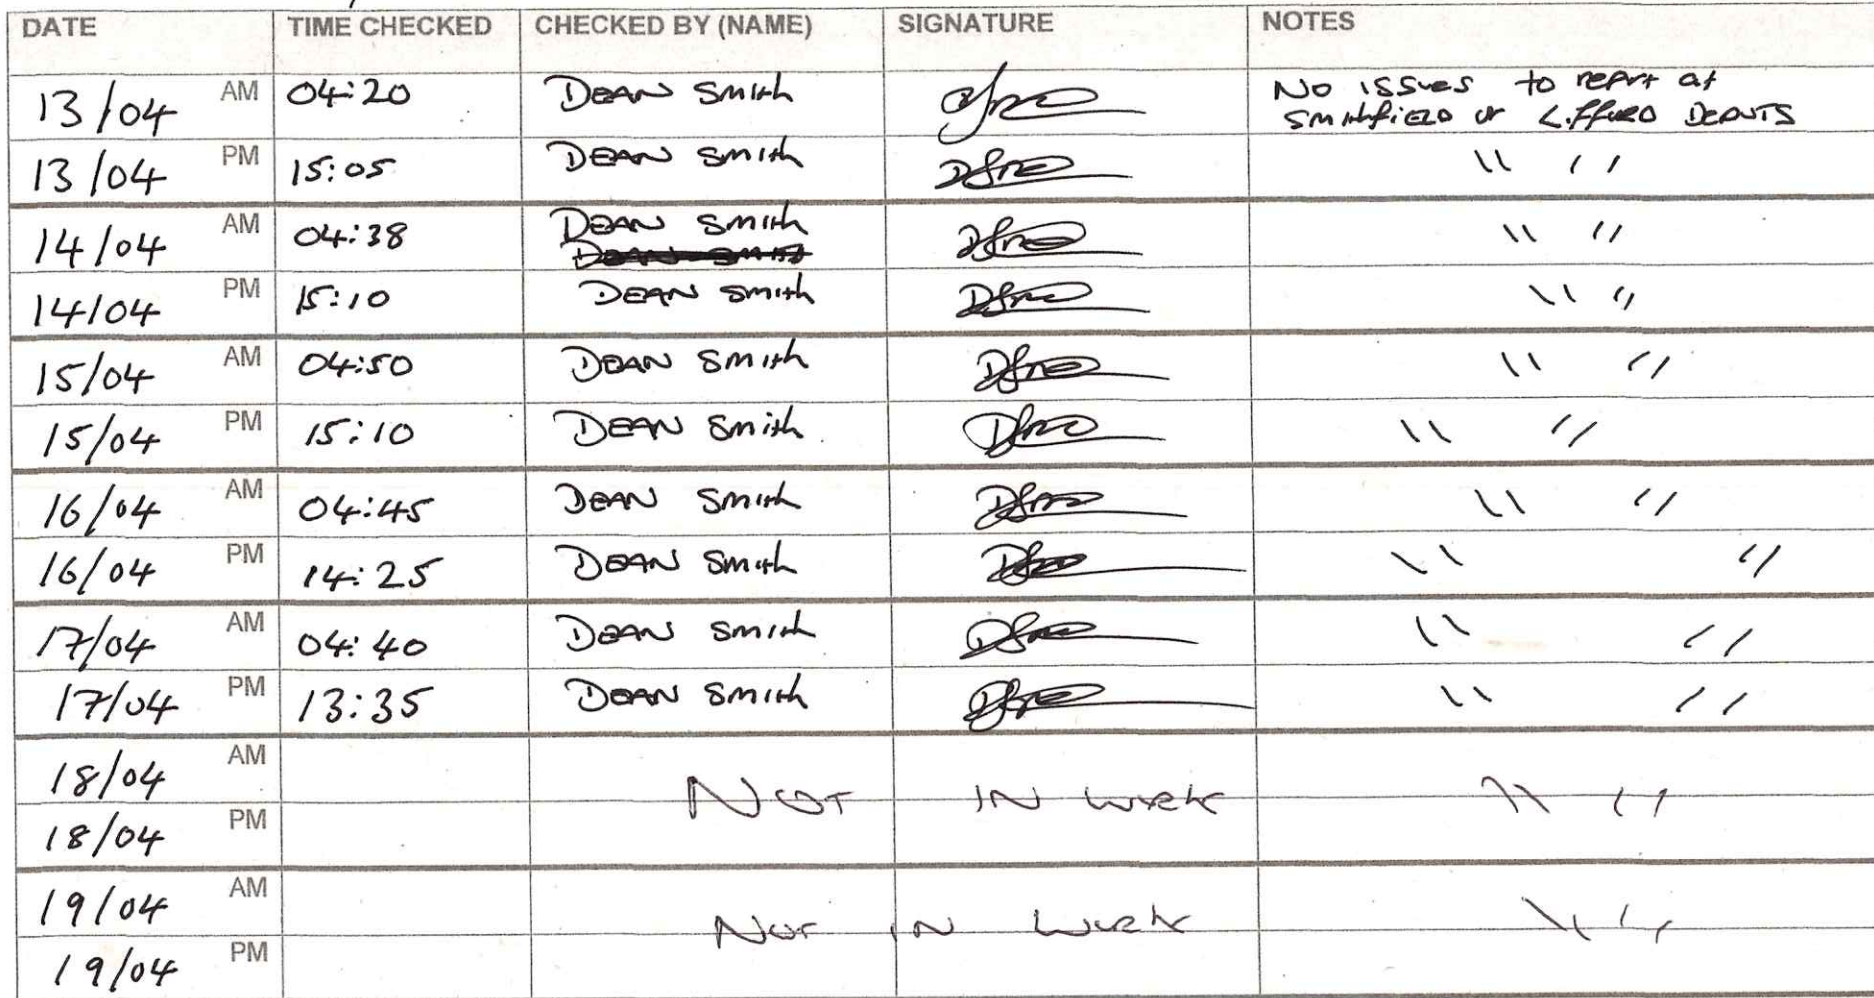 DATE TIME CHECKED CHECKED BY (NAME) SIGNATURE NOTES
13/04 AM 04:20 DEAN Smith No issues to report at
Smithfield or Lifford DEPOTS
13/04 PM 15:05 DEAN Smith " "
14/04 AM 04:38 DEAN Smith " "
14/04 PM 15:10 DEAN Smith " "
15/04 AM 04:50 DEAN Smith " "
15/04 PM 15:10 DEAN Smith " "
16/04 AM 04:45 DEAN Smith " "
16/04 PM 14:25 DEAN Smith " "
17/04 AM 04:40 DEAN Smith " "
17/04 PM 13:35 DEAN Smith " "
18/04 AM
NOT IN WORK " "
18/04 PM
19/04 AM
NOT IN WORK " "
19/04 PM